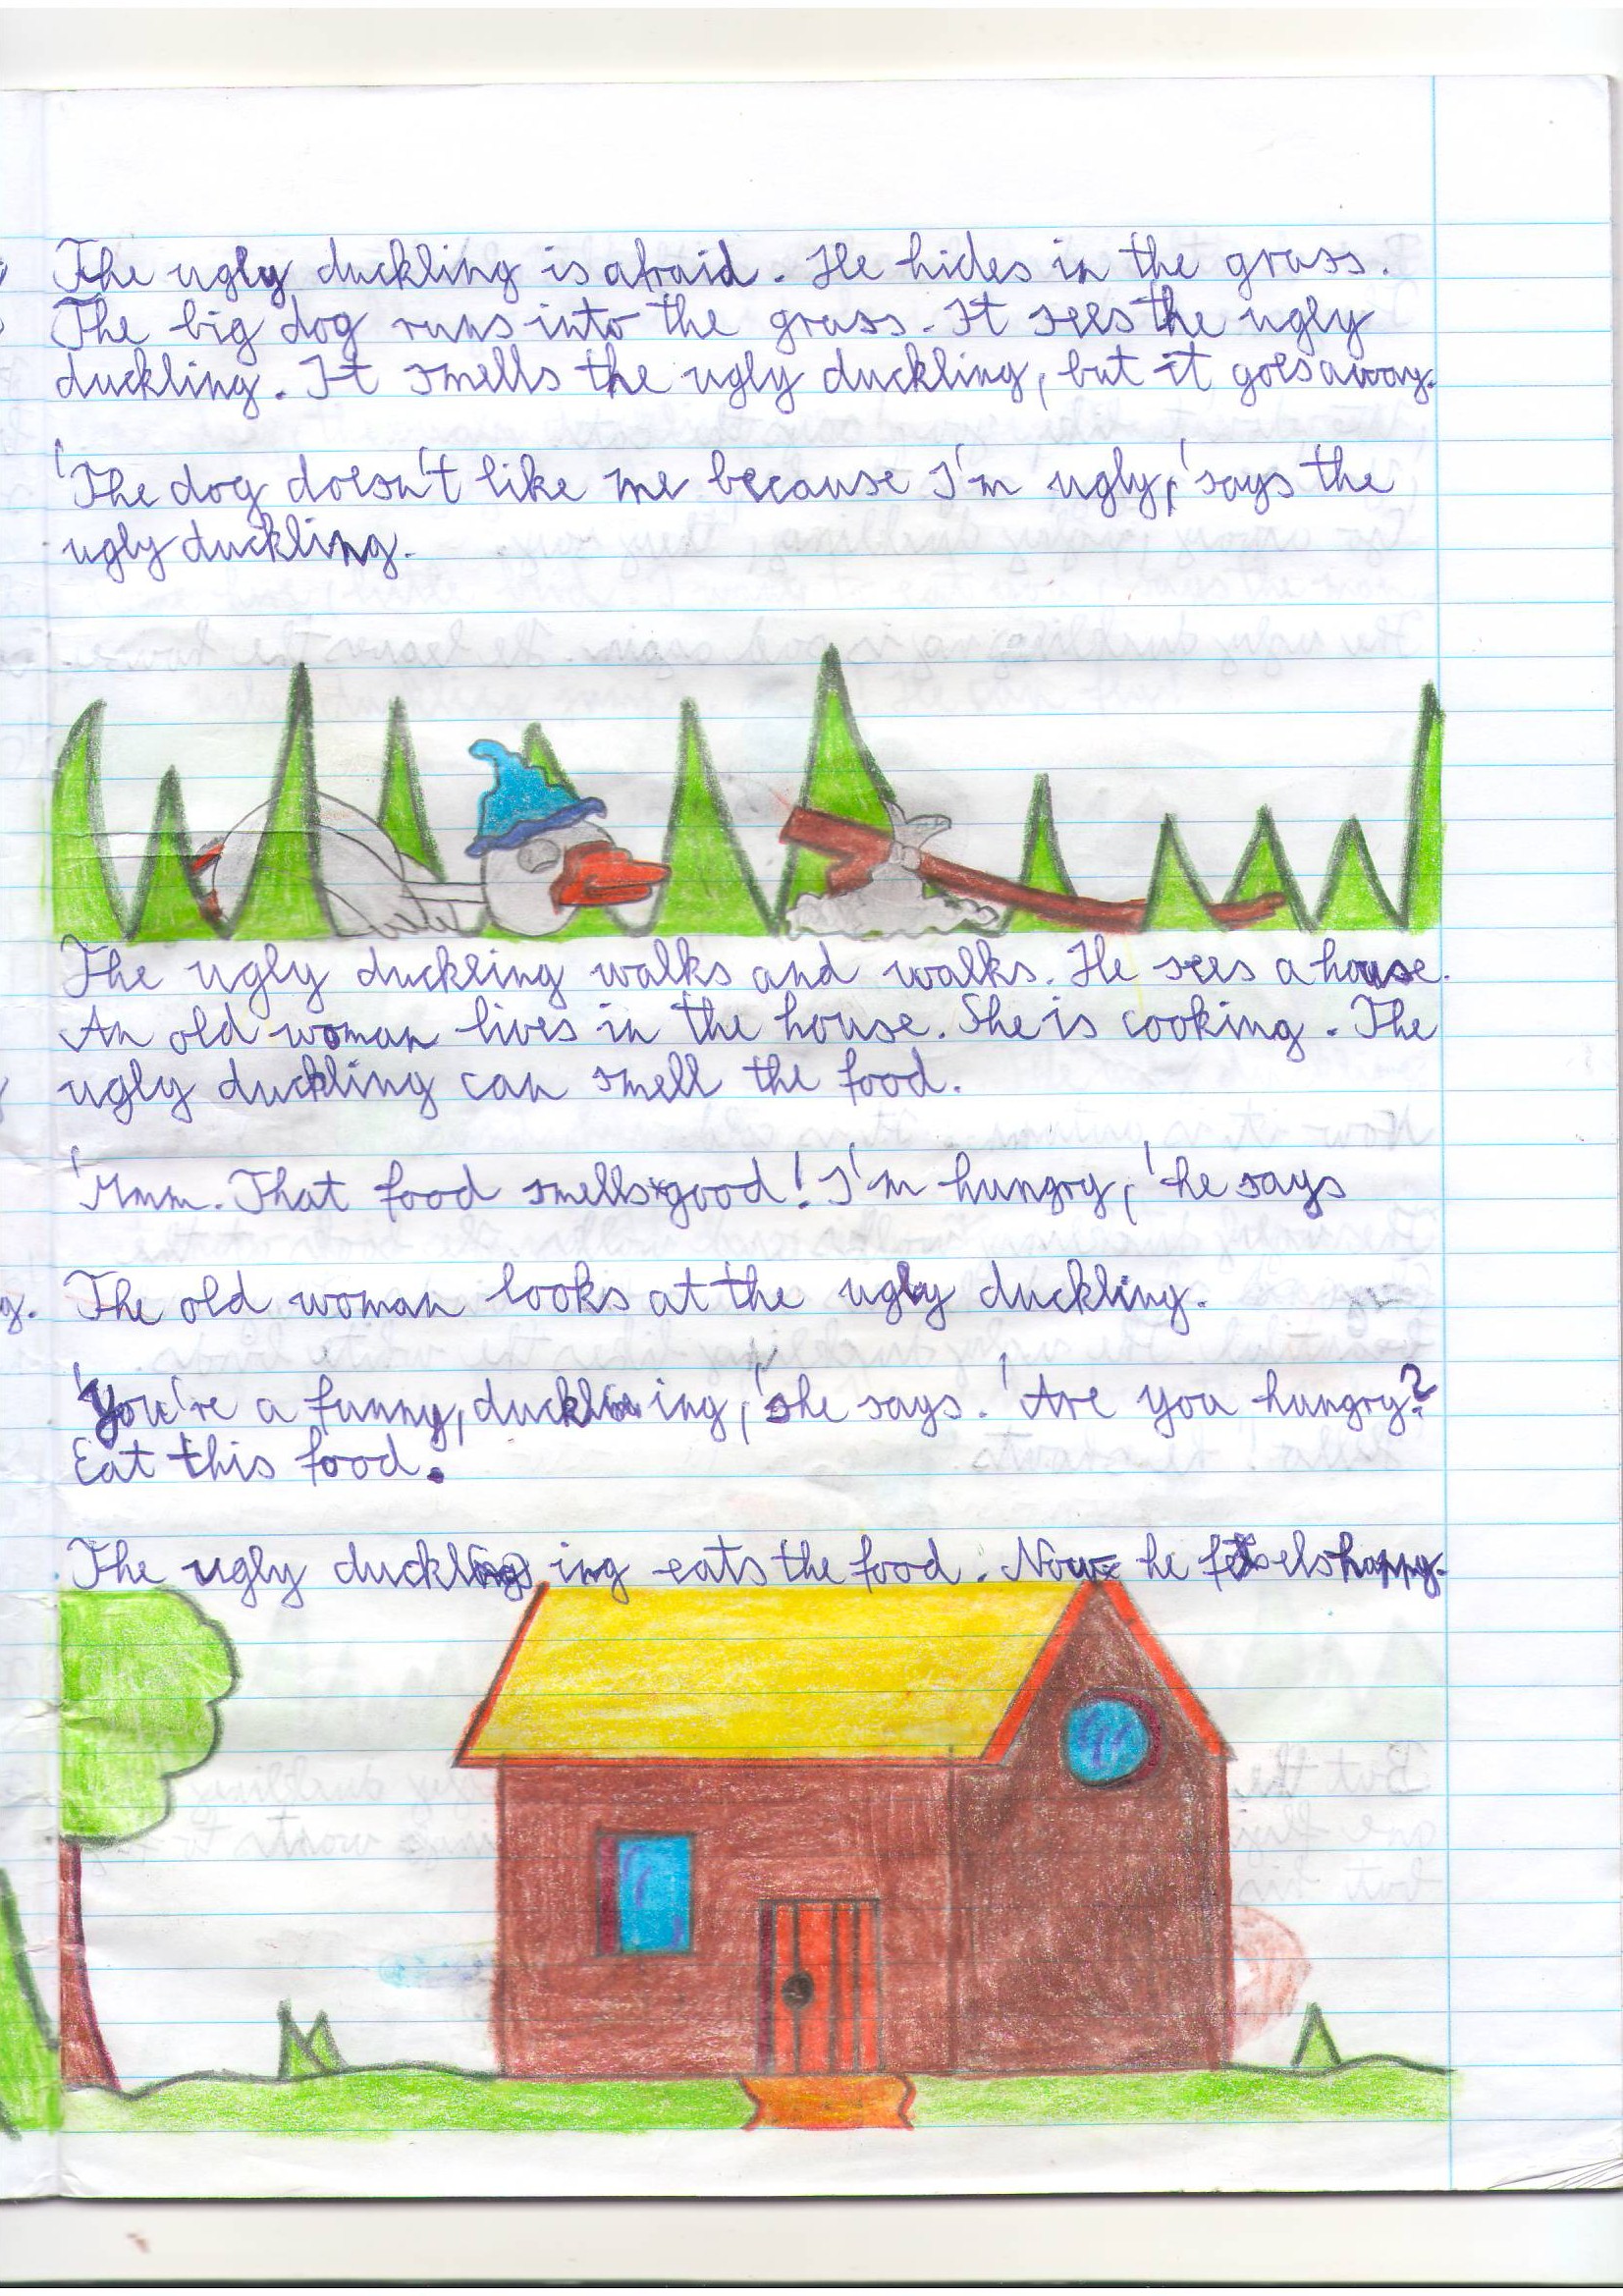 The ugly duckling is afraid. He hides in the grass.
The big dog runs into the grass. It sees the ugly
duckling. It smells the ugly duckling, but it goes away.
'The dog doesn't like me because I'm ugly,' says the
ugly duckling.
The ugly duckling walks and walks. He sees a house.
An old woman lives in the house. She is cooking. The
ugly duckling can smell the food.
'Mmm. That food smells good! I'm hungry,' he says
The old woman looks at the ugly duckling.
'You're a funny, duckling,' she says. 'Are you hungry?
Eat this food.
The ugly duckling eats the food. Now he feels happy.